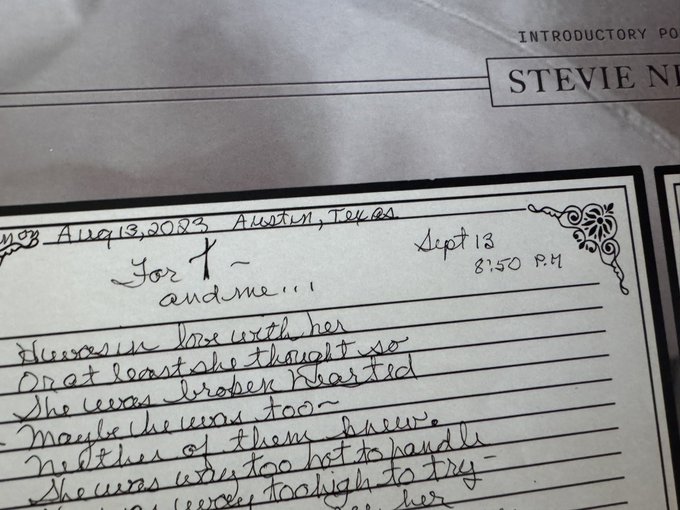 INTRODUCTORY PO
STEVIE NI
on Aug 13, 2023 Austin, Texas
Sept 13
8:50 P.M
For T ~
and me...
He was in love with her
Or at least she thought so
She was broken hearted
Maybe he was too ~
Neither of them knew.
She was way too hot to handle
was way too high to try -
her